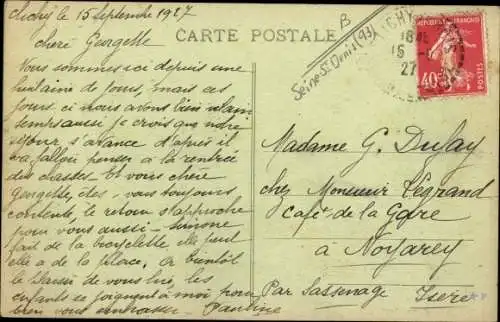 Clichy le 15 Septembre 1927
CARTE POSTALE
B
Seine St Denis (93)
CLICHY
1845
15
27
40c
POSTES
chère Georgette
Vous sommes ici depuis une
huitaine de jours, mais ces
jours ci nous avons bien vilain
temps aussi je crois que notre
séjour s'avance d'après il
va falloir penser à la rentrée
des classes. Et vous chère
Georgette, êtes-vous toujours
contents, le retour s'approche
pour vous aussi - Simone
fait de la bicyclette elle peut
elle a de la place. A bientôt
le plaisir de vous lire, les
enfants se joignent à moi pour
bien vous embrasser - Pauline
Madame G. Dufay
chez Monsieur Legrand
Café de la Gare
à Noyarey
Par Sassenage Isère